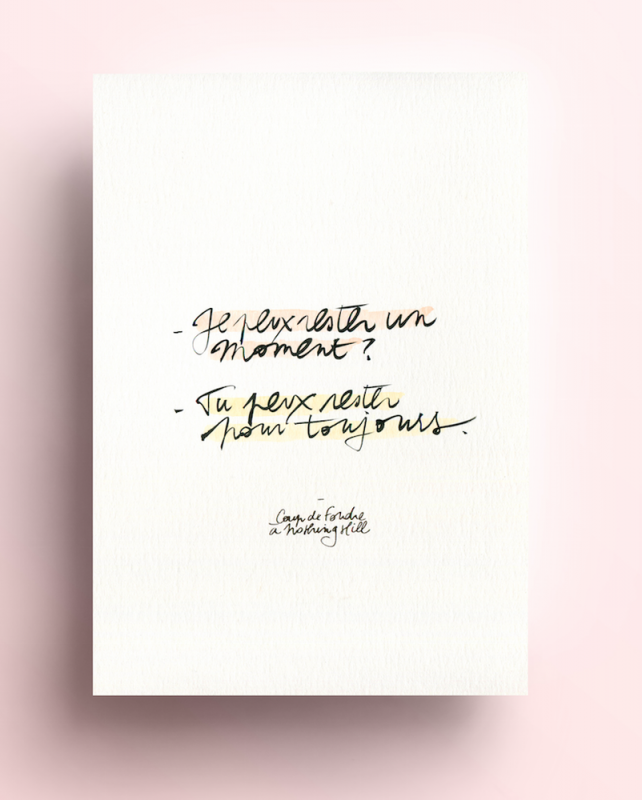 - Je peux rester un
moment ?
- Tu peux rester
pour toujours.
-
Coup de foudre
à Nothing Hill